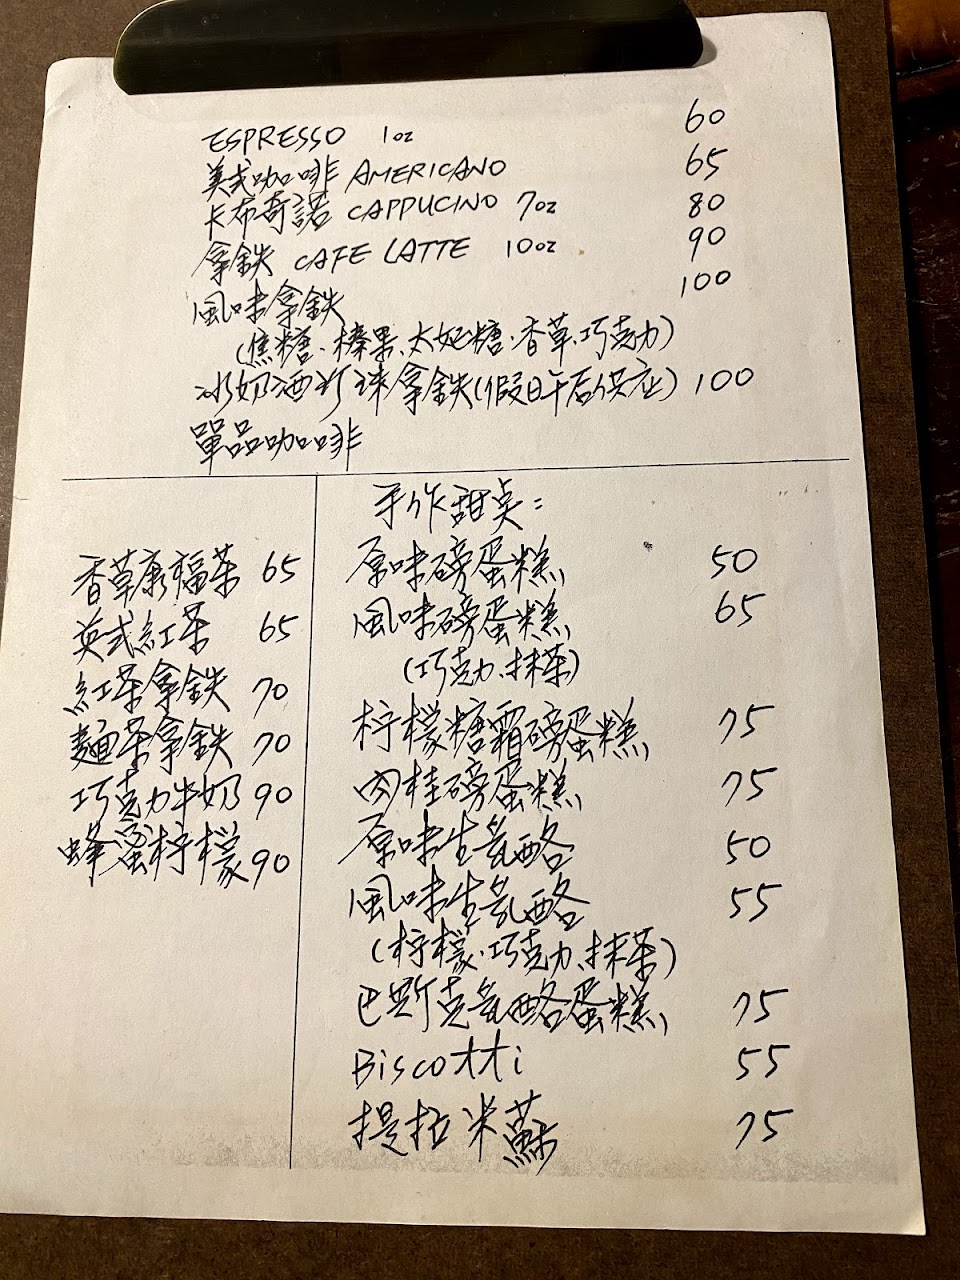 ESPRESSO 1oz 60
美式咖啡 AMERICANO 65
卡布奇諾 CAPPUCINO 7oz 80
拿鉄 CAFE LATTE 10oz 90
風味拿鉄 100
(焦糖.榛果、太妃糖.香草.巧克力)
冰奶酒珍珠拿鉄(假日午后供应) 100
單品咖啡
香草康福茶 65
英式紅茶 65
紅茶拿鉄 70
麵茶拿鉄 70
巧克力牛奶 90
蜂蜜柠檬 90
手作甜点:
原味磅蛋糕 50
風味磅蛋糕 65
(巧克力.抹茶)
柠檬糖霜磅蛋糕 75
肉桂磅蛋糕 75
原味生乳酪 50
風味生乳酪 55
(柠檬.巧克力、抹茶)
巴斯克乳酪蛋糕 75
Biscotti 55
提拉米蘇 75